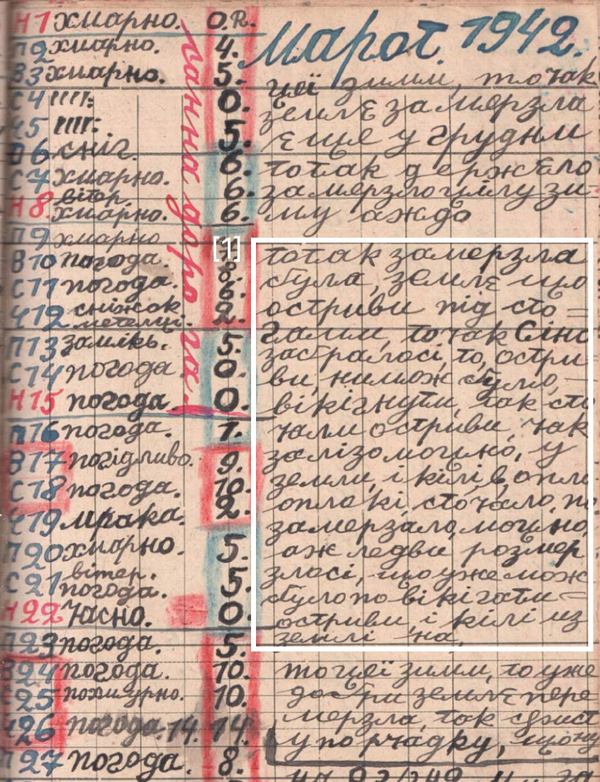 Марот. 1942.
Н1 хмарно. 0.R.
П2 хмарно. 4.
В3 хмарно. 5.
С4 ıııı. 0.
Ч5 ıııı. 5.
П6 сніг. 6.
С7 хмарно. 6.
Н8 вітер. хмарно. 6.
П9 хмарно
В10 погода. 8.
С11 погода. 6.
Ч12 сніжок. метелиця. 2.
П13 замікь. 5.
С14 погода 0.
Н15 погода. 0.
П16 погода. 7.
В17 погідливо. 9.
С18 погода. 10.
Ч19 мрака. 2.
П20 хмарно. 5.
С21 вітер. погода. 5.
Н22 Часно. 0.
П23 погода. 5.
В24 погода. 10.
С25 похмурно. 10.
Ч26 погода. 14. 14.
П27 погода. 8.
ганна доро га.
цеї зими, то так
земле замерзла
еще у грудни
то так держело
замерзлогцілу зи
му аждо
[1]
то так замерзла
була, земле що
остриви під сто=
гами, то так Сіно
забралосі, то, остри
ви, неможбуло=
вікігнути, так сто
чали остриви, чак
залізо могшно, у
земли, і кілі в, опли
оплекі, сто чало, по
замерзало, могшно,
аж ледви розмер
злосі, що уже мож
було по вікігати=
остриви, і кілі из
землі на,
то цеї зими, то уже
добри земле пере
мерзла так сфист
упорчадку, що